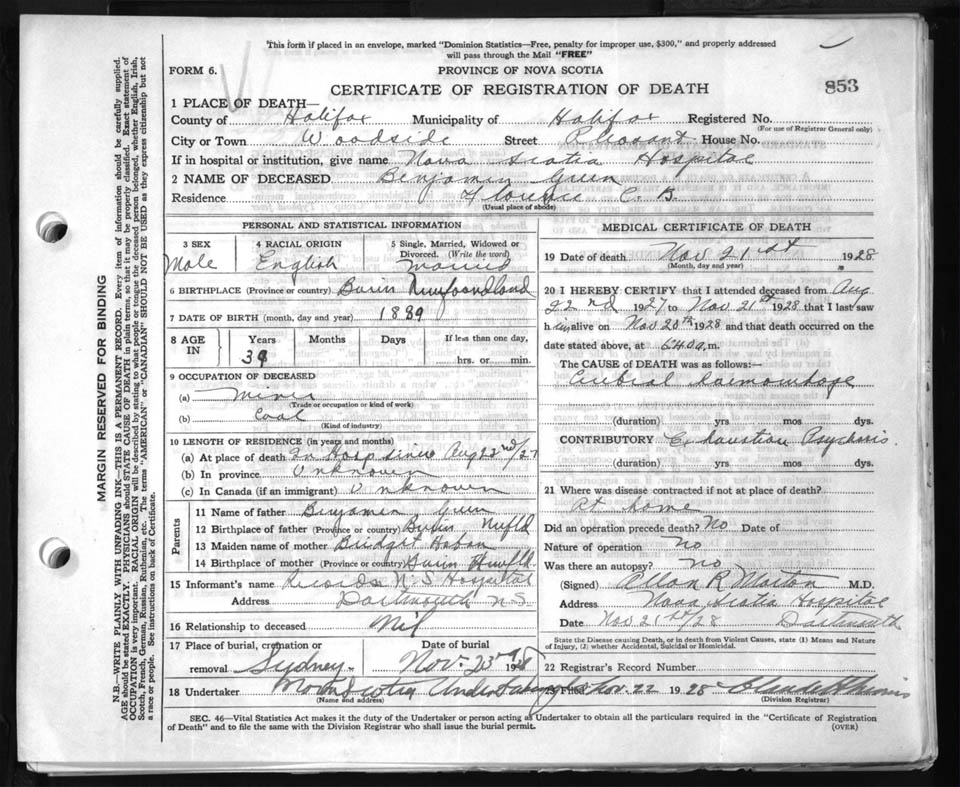 This form if placed in an envelope, marked "Dominion Statistics—Free, penalty for improper use, $300," and properly addressed
will pass through the Mail "FREE"
FORM 6.
PROVINCE OF NOVA SCOTIA
CERTIFICATE OF REGISTRATION OF DEATH
853
1 PLACE OF DEATH—
County of Halifax Municipality of Halifax Registered No.
(For use of Registrar General only)
City or Town Woodside Street Pleasant House No.
If in hospital or institution, give name Nova Scotia Hospital
2 NAME OF DECEASED Benjamin Green
Residence Florence C. B.
(Usual place of abode)
PERSONAL AND STATISTICAL INFORMATION
3 SEX 4 RACIAL ORIGIN 5 Single, Married, Widowed or
Divorced. (Write the word)
Male English Married
6 BIRTHPLACE (Province or country) Burin Newfoundland
7 DATE OF BIRTH (month, day and year) 1889
8 AGE Years Months Days If less than one day,
IN 39 hrs. or min.
9 OCCUPATION OF DECEASED
(a) Miner
(Trade or occupation or kind of work)
(b) Coal
(Kind of industry)
10 LENGTH OF RESIDENCE (in years and months)
(a) At place of death In Hosp since Aug 22nd/27
(b) In province Unknown
(c) In Canada (if an immigrant) Unknown
Parents
11 Name of father Benjamin Green
12 Birthplace of father (Province or country) Burin Nufld
13 Maiden name of mother Bridget
14 Birthplace of mother (Province or country) Burin Newfld.
15 Informant's name Records N. S Hospital
Address Dartmouth N.S
16 Relationship to deceased Nil
17 Place of burial, cremation or Date of burial
removal Sydney Nov. 23rd 1928
18 Undertaker Nova Scotia Undertaking
(Name and address)
MEDICAL CERTIFICATE OF DEATH
19 Date of death Nov 21st 1928
(Month, day and year)
20 I HEREBY CERTIFY that I attended deceased from Aug
22nd, 1927 to Nov 21st 1928 that I last saw
him alive on Nov 20th 1928 and that death occurred on the
date stated above, at 6.40 a. m.
The CAUSE of DEATH was as follows:—
Cerebral haemorrhage
(duration) yrs mos dys.
CONTRIBUTORY Exhaustion Psychosis.
(duration) yrs. mos dys.
21 Where was disease contracted if not at place of death?
At home
Did an operation precede death? No Date of
Nature of operation no
Was there an autopsy? no
(Signed) Allan R Morton M.D.
Address Nova Scotia Hospital
Date Nov 21st/28 Dartmouth
State the Disease causing Death, or in death from Violent Causes, state (1) Means and Nature
of Injury, (2) whether Accidental, Suicidal or Homicidal.
22 Registrar's Record Number
23 Filed Nov. 22 1928
(Division Registrar)
SEC. 46—Vital Statistics Act makes it the duty of the Undertaker or person acting as Undertaker to obtain all the particulars required in the "Certificate of Registration
of Death" and to file the same with the Division Registrar who shall issue the burial permit.
(OVER)
MARGIN RESERVED FOR BINDING
N.B.—WRITE PLAINLY WITH UNFADING INK—THIS IS A PERMANENT RECORD. Every item of information should be carefully supplied.
AGE should be stated EXACTLY. PHYSICIANS should STATE CAUSE OF DEATH in plain terms, so that it may be properly classified. Exact statement of
OCCUPATION is very important. RACIAL ORIGIN will be described by stating to what people or tongue the deceased person belonged, whether English, Irish,
Scotch, French, German, Russian, Ruthenian, etc. The terms "AMERICAN" or "CANADIAN" SHOULD NOT BE USED as they express citizenship but not
a race or people. See instructions on back of Certificate.